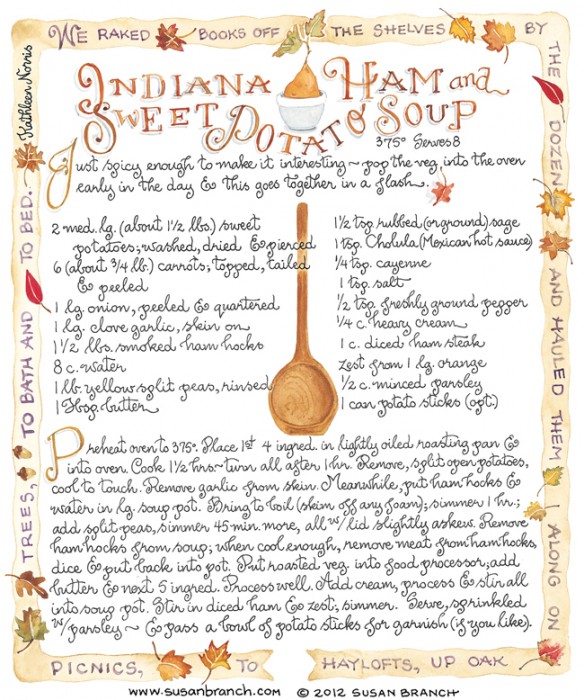 WE RAKED BOOKS OFF THE SHELVES BY
THE DOZEN AND HAULED THEM ALONG ON
PICNICS, TO HAYLOFTS, UP OAK
TREES, TO BATH AND TO BED.
Kathleen Norris
INDIANA HAM and
SWEET POTATO SOUP
375° Serves 8
Just spicy enough to make it interesting ~ pop the veg. into the oven
early in the day & this goes together in a flash.
2 med. lg. (about 1½ lbs.) sweet
potatoes; washed, dried & pierced
6 (about ¾ lb.) carrots; topped, tailed
& peeled
1 lg. onion, peeled & quartered
1 lg. clove garlic, skin on
1 ½ lbs. smoked ham hocks
8 c. water
1 lb. yellow split peas, rinsed
1 Tbsp. butter
1½ tsp. rubbed (or ground) sage
1 tsp. Cholula (Mexican hot sauce)
¼ tsp. cayenne
1 tsp. salt
½ tsp. freshly ground pepper
¼ c. heavy cream
1 c. diced ham steak
zest from 1 lg. orange
½ c. minced parsley
1 can potato sticks (opt.)
Preheat oven to 375°. Place 1st 4 ingred. in lightly oiled roasting pan &
into oven. Cook 1½ hrs ~ turn all after 1 hr. Remove, split open potatoes,
cool to touch. Remove garlic from skin. Meanwhile, put ham hocks &
water in lg. soup pot. Bring to boil (skim off any foam); simmer 1 hr.;
add split peas, simmer 45 min. more, all w/ lid slightly askew. Remove
ham hocks from soup; when cool enough, remove meat from ham hocks,
dice & put back into pot. Put roasted veg. into food processor; add
butter & next 5 ingred. Process well. Add cream, process & stir all
into soup pot. Stir in diced ham & zest; simmer. Serve, sprinkled
w/ parsley ~ & pass a bowl of potato sticks for garnish (if you like).
www.susanbranch.com © 2012 SUSAN BRANCH